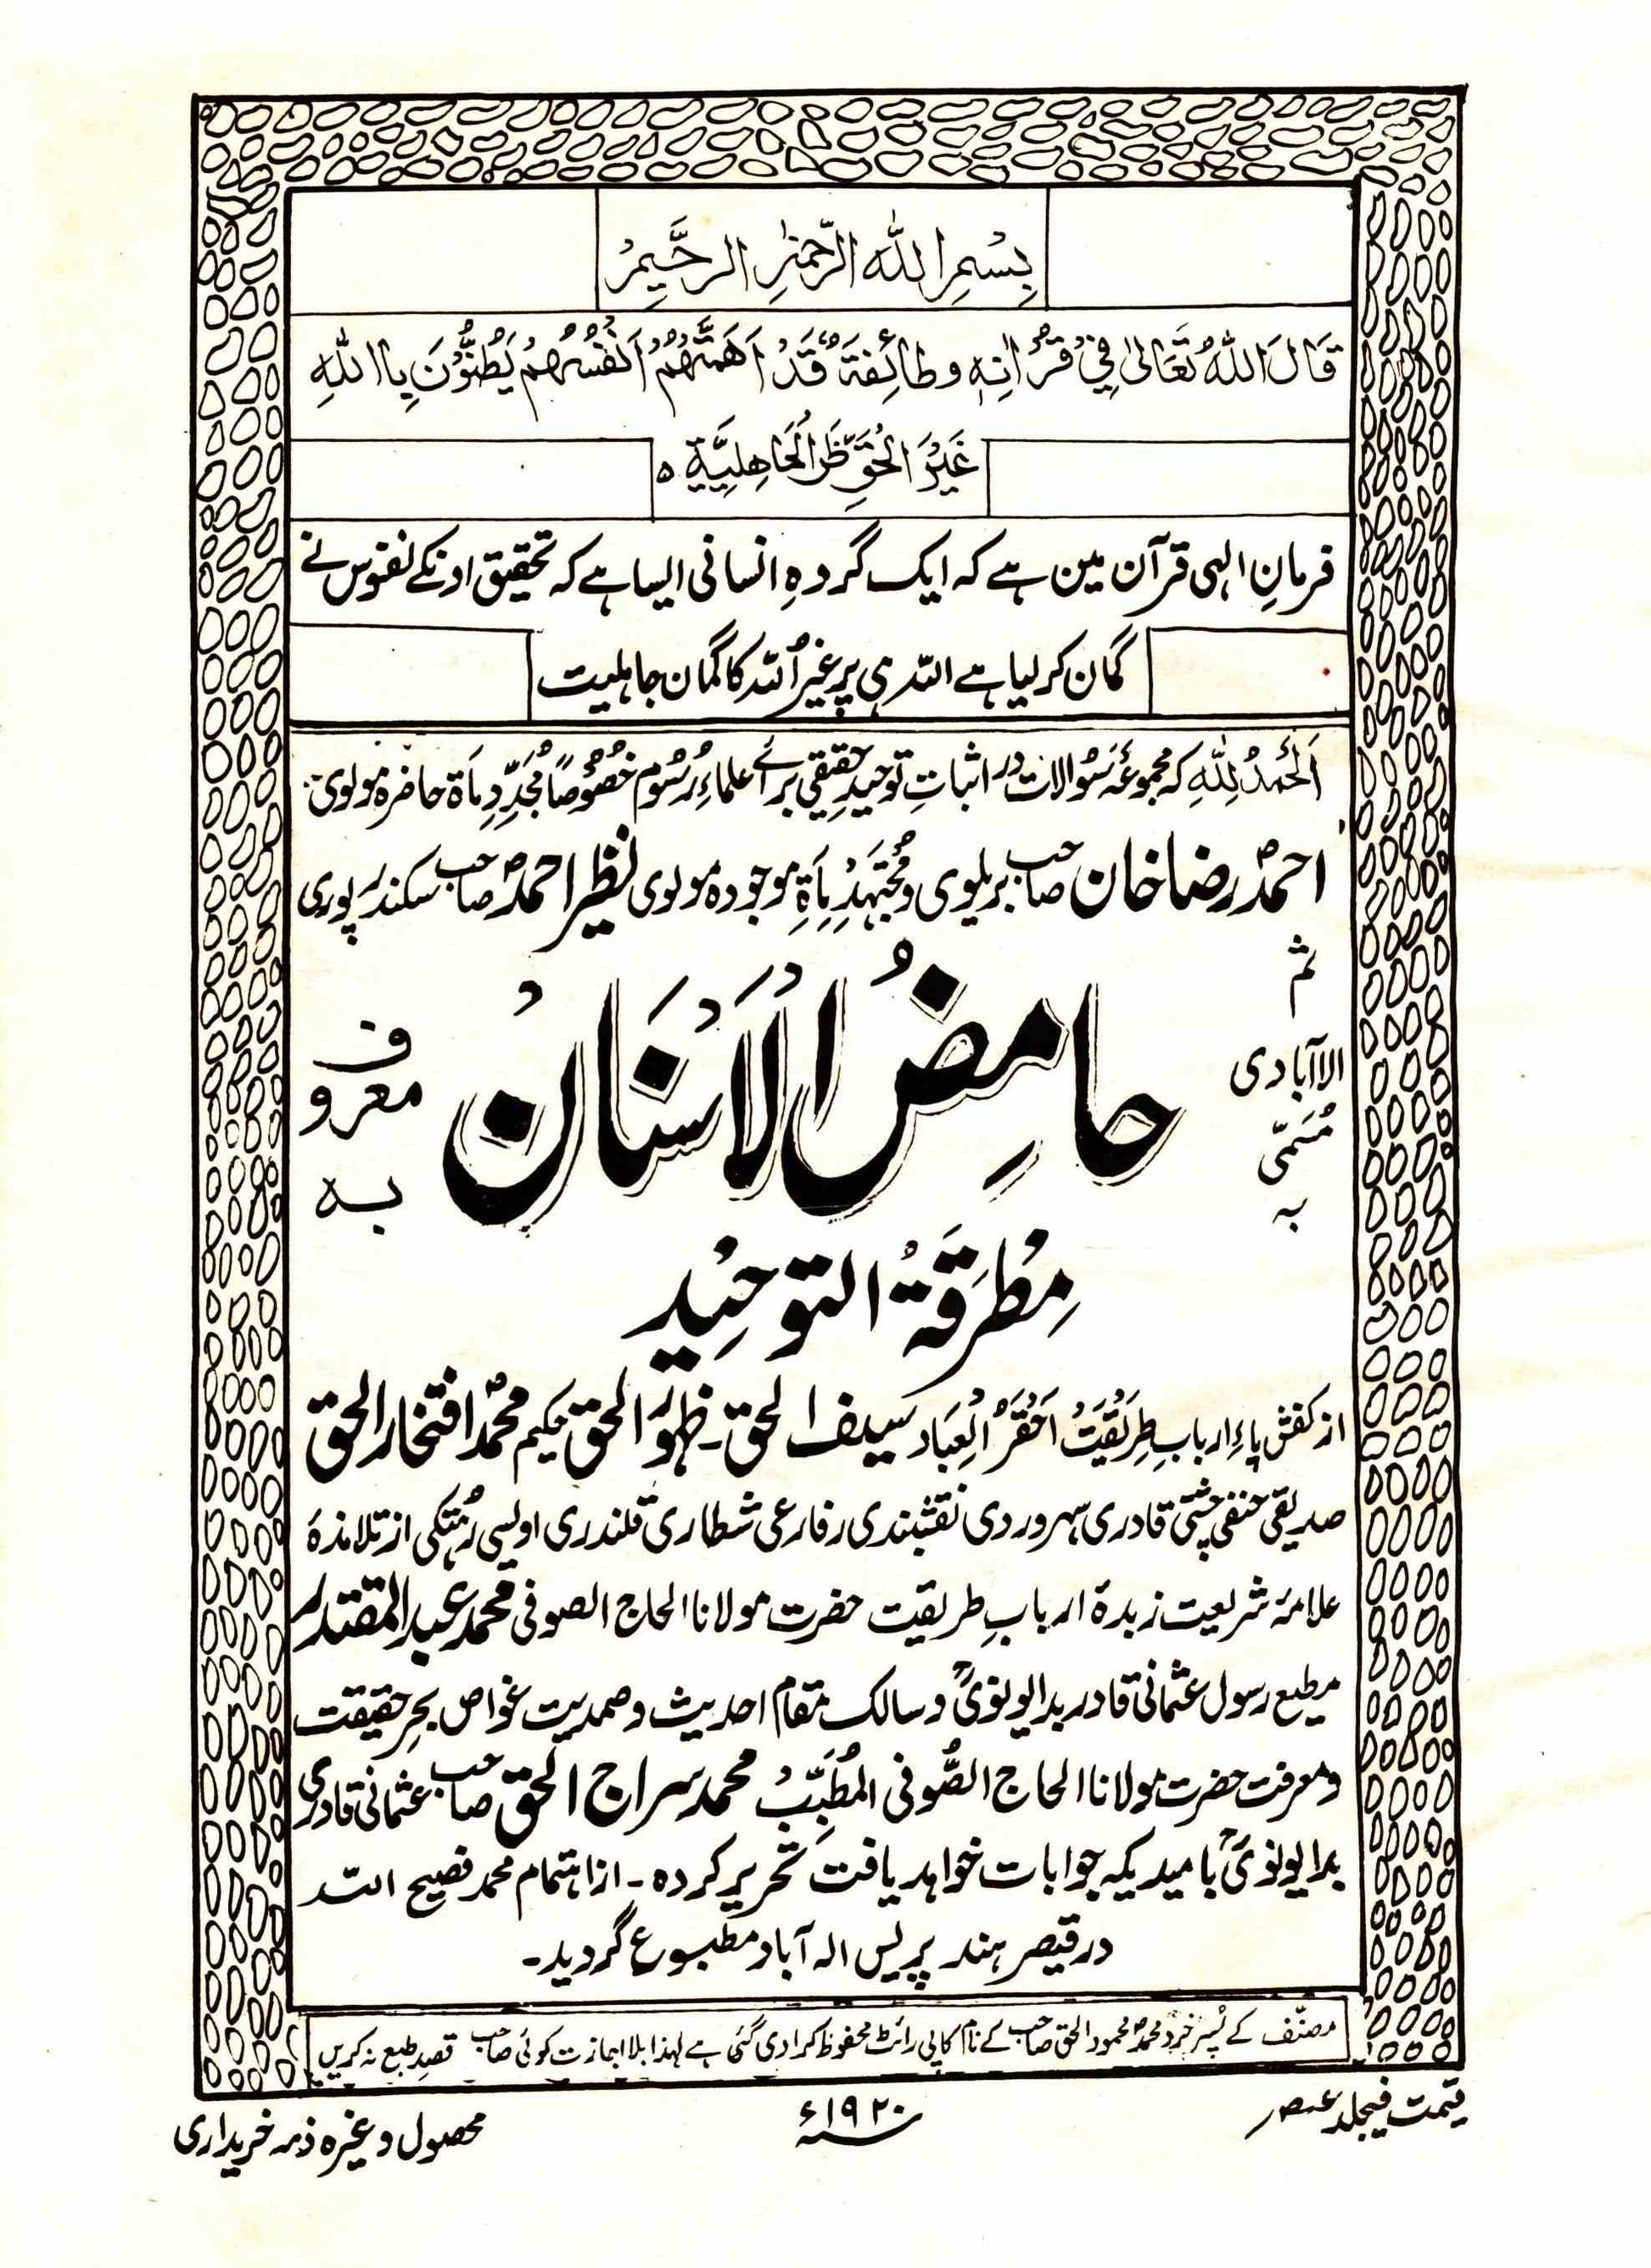 بِسْمِ اللّٰہِ الرَّحْمٰنِ الرَّحِیْمِ
قَالَ اللّٰہُ تَعَالیٰ فِیْ قُرْاٰنِہٖ وطائِفَۃٌ قَدْ اَھَمَّتْھُمْ اَنْفُسُہُمْ یَظُنُّوْنَ بِااللّٰہِ
غَیْرَ الْحَقِّ ظَنَّ الْجَاھِلِیَّۃِ ہ
فرمانِ الہی قرآن مین ہے کہ ایک گروہِ انسانی ایسا ہے کہ تحقیق اونکے نفوس نے
گمان کر لیا ہے اللہ ہی پر غیر اللہ کا گمان جاہلیت
اَلْحَمْدُ لِلّٰہِ کہ مجموعۂ سُوالات در اثباتِ توحیدِ حقیقی برائے علماءِ رُسُوم خُصُوْصًا مُجَدِّدِ مأۃ حاضرہ مولوی
احمد رضا خان صاحب بریلوی و مُجْتَہِدِ مِأَۃِ موجودہ مولوی نظیر احمد صاحب سکندر پوری
ثم الاآبادی مُسَمّٰی بہ
حامِضُ الْاَسْنَانْ
معروف بہ
مِطْرَقَۃُ التوحِیْد
از کفش پاءِ اربابِ طریقت اَحْقَرُ الْعِبَاد سیف الحق ۔ ظہورُ الحق حکیم محمد افتخار الحق
صدیقی حنفی چشتی قادری سہروردی نقشبندی رفاعی شطاری قلندری اویسی رُہتکی از تلامذۂ
علامۂ شریعت زبدۃ اربابِ طریقت حضرت مولانا الحاج الصوفی محمد عبد المقتدر
مطیع رسول عثمانی قادر بدایونویؒ و سالک مقام احدیث و صمدیت غواص بحرِ حقیقت
ومعرفت حضرت مولانا الحاج الصُّوفی المُطَبِّبْ محمد سراج الحق صاحب عثمانی قادری
بدایونویؒ بامیدیکہ جوابات خواہد یافت تحریر کردہ ۔ از اہتمام محمد فصیح اللہ
در قیصر ہند پریس الہ آباد مطبوع گردید ۔
مصنّف کے پسر خرد محمد محمود الحق صاحب کے نام کاپی رائٹ محفوظ کرا دی گئی ہے لہذا بلا اجازت کوئی صاحب قصدِ طبع نہ کریں
قیمت فیجلد
۱۹۲۰ء
محصول وغیرہ ذمہ خریداری